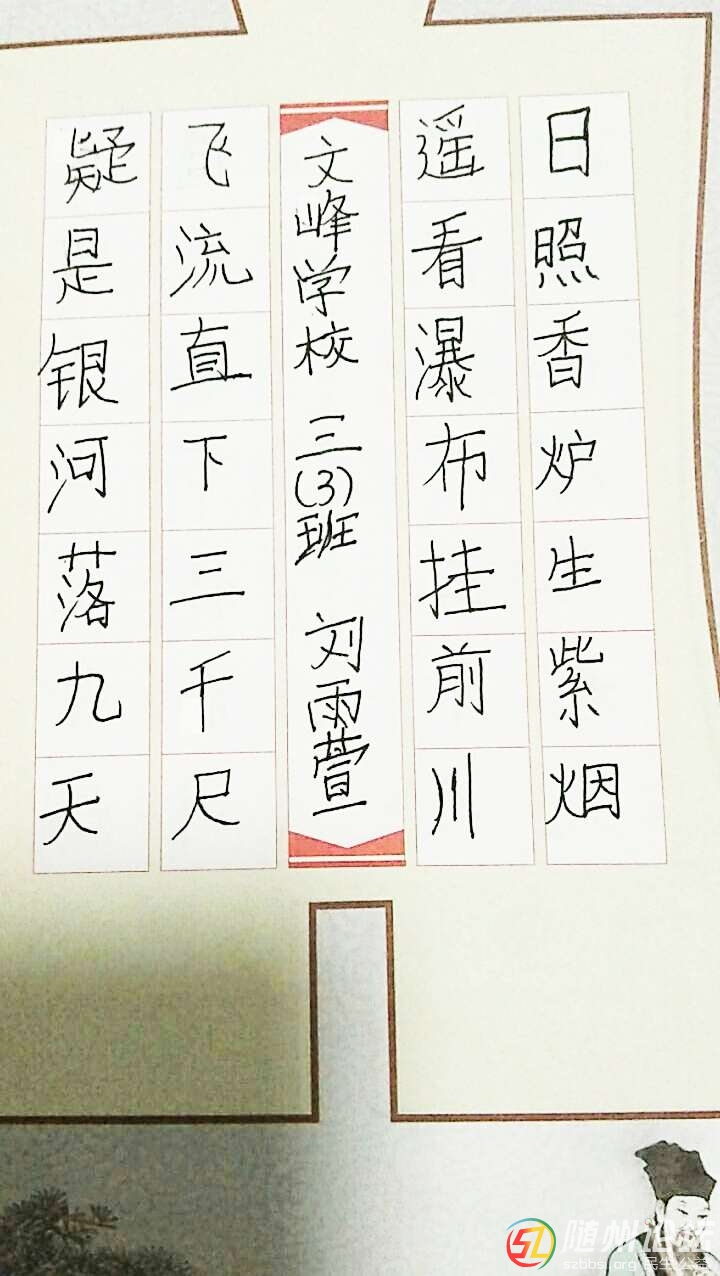 日照香炉生紫烟
遥看瀑布挂前川
文峰学校 三(3)班 刘雨萱
飞流直下三千尺
疑是银河落九天
随州论坛
szbbs.org 民生公益